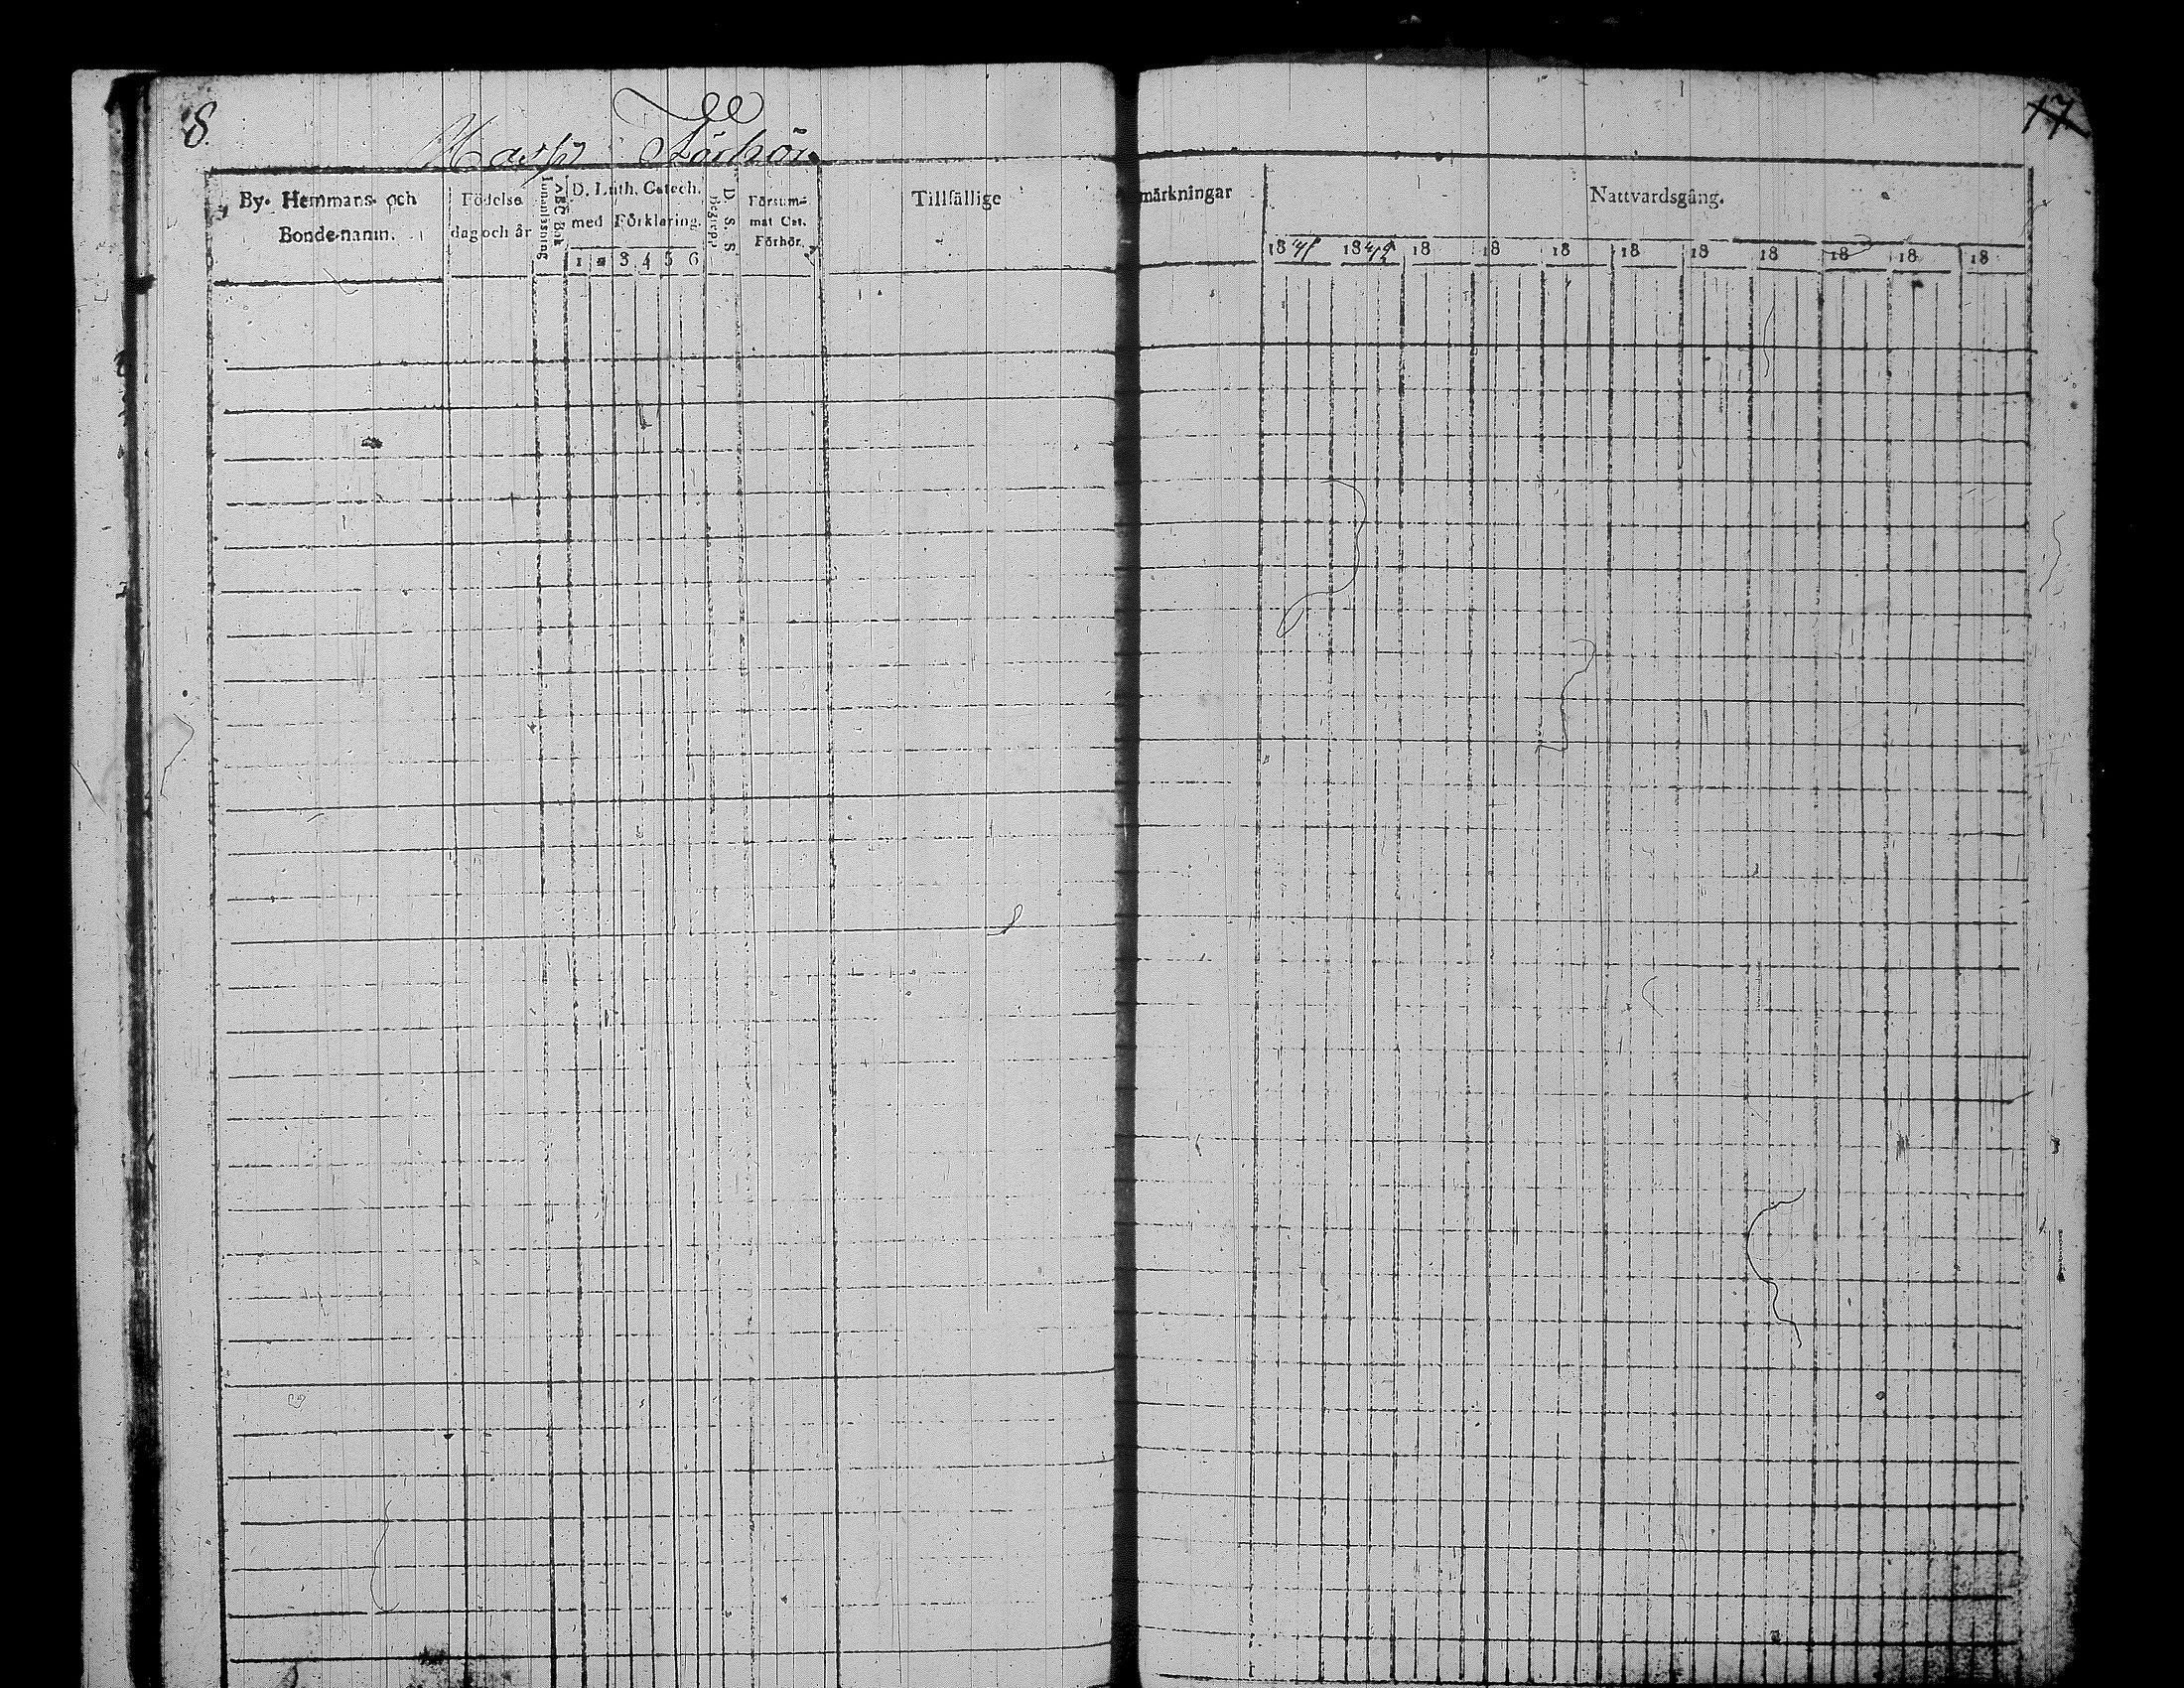 8.
17
Förhör
By- Hemmans- och
Bonde-namn.
Födelse
dag och år
Innanläsning
ABC Bok
D. Luth. Catech.
med Förklaring.
1 2 3 4 5 6
D. S. S.
Begrep.
Försum-
mat Cat.
Förhör.
Tillfällige
märkningar
Nattvardsgång.
1841 1842 18 18 18 18 18 18 18 18 18